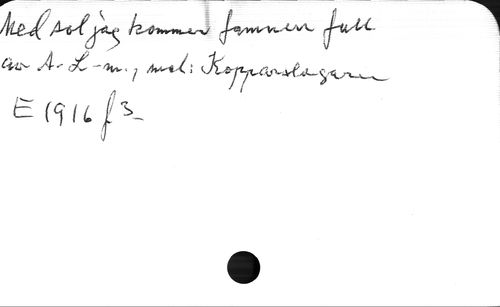 Med sol jag kommer famnen full
av A-L-m., mel: Kopparslagaren
E 1916 f 3